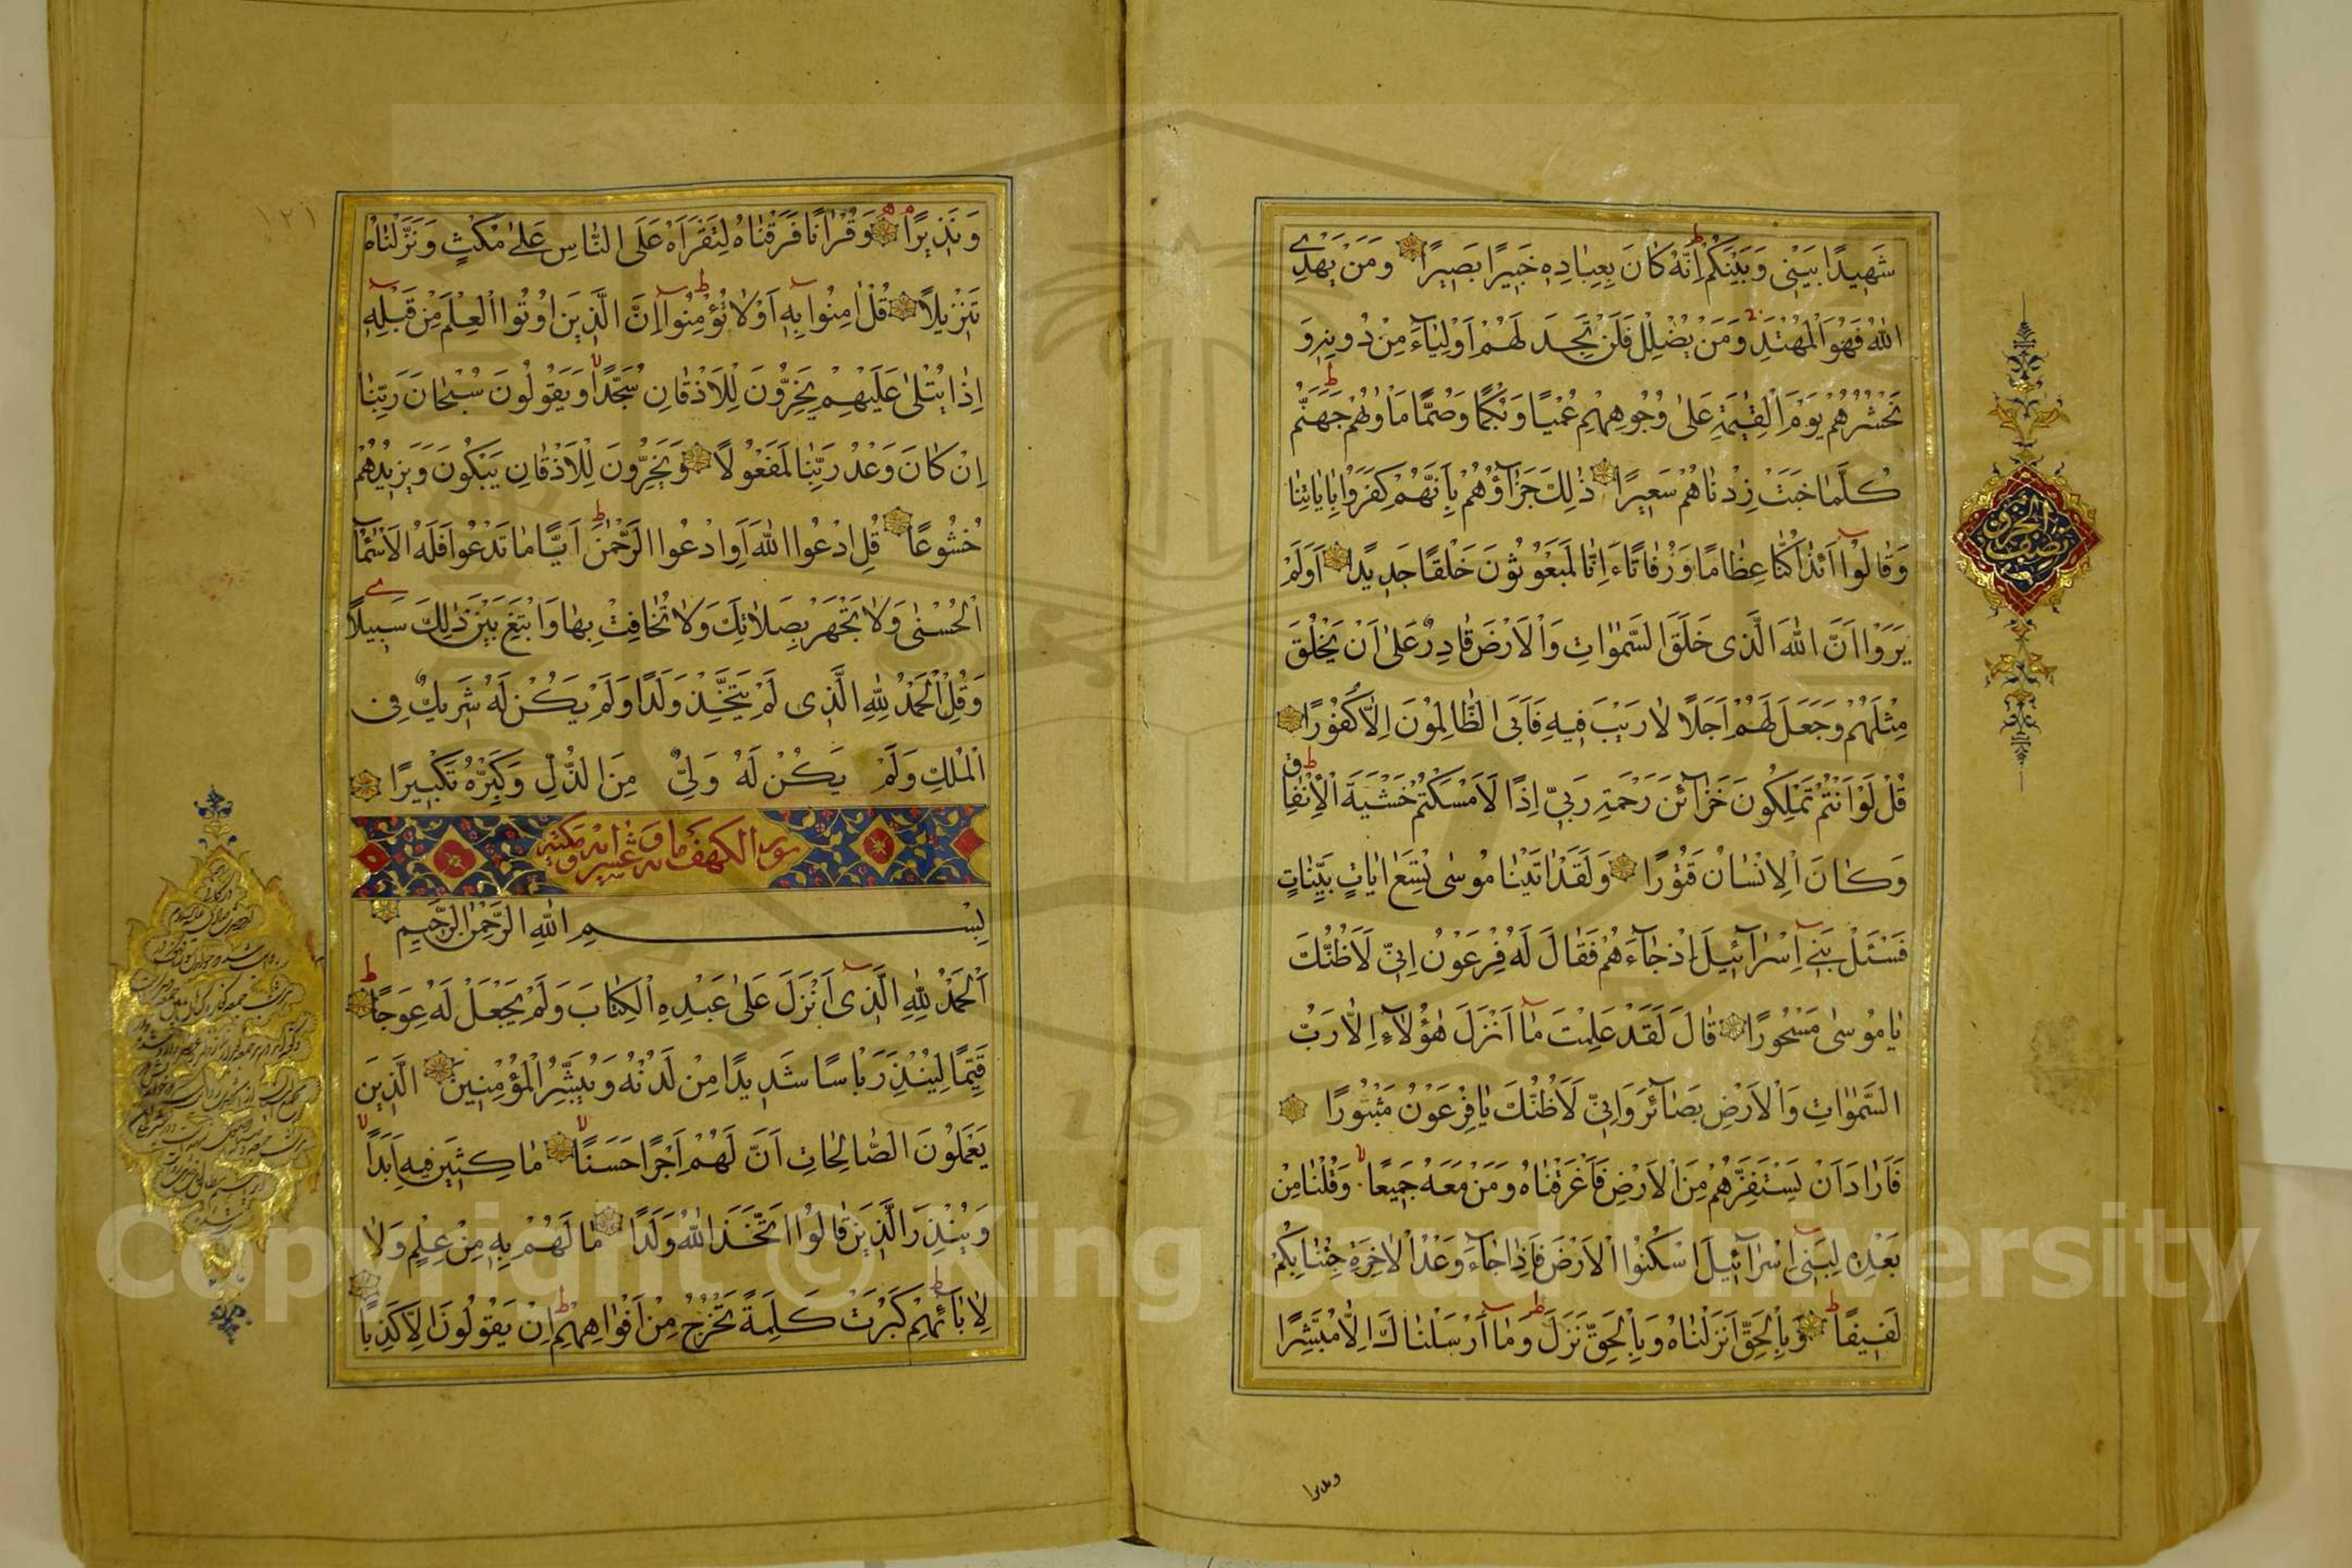 شَهِيدًا بَيْنِي وَبَيْنَكُمْ اِنَّهُ كَانَ بِعِبَادِهِ خَبِيرًا بَصِيرًا وَمَنْ يَهْدِ
اللّٰهُ فَهُوَ الْمُهْتَدِ وَمَنْ يُضْلِلْ فَلَنْ تَجِدَ لَهُمْ اَوْلِيَاءَ مِنْ دُونِهِ وَ
نَحْشُرُهُمْ يَوْمَ الْقِيٰمَةِ عَلٰى وُجُوهِهِمْ عُمْيًا وَبُكْمًا وَصُمًّا مَاْوٰيهُمْ جَهَنَّمُ
كُلَّمَا خَبَتْ زِدْنَاهُمْ سَعِيرًا ذٰلِكَ جَزَآؤُهُمْ بِاَنَّهُمْ كَفَرُوا بِاٰيَاتِنَا
وَقَالُوا ءَاِذَا كُنَّا عِظَامًا وَرُفَاتًا ءَاِنَّا لَمَبْعُوثُونَ خَلْقًا جَدِيدًا اَوَلَمْ
يَرَوْا اَنَّ اللّٰهَ الَّذِى خَلَقَ السَّمٰوَاتِ وَالْاَرْضَ قَادِرٌ عَلٰى اَنْ يَخْلُقَ
مِثْلَهُمْ وَجَعَلَ لَهُمْ اَجَلًا لَا رَيْبَ فِيهِ فَاَبَى الظَّالِمُونَ اِلَّا كُفُورًا
قُلْ لَوْ اَنْتُمْ تَمْلِكُونَ خَزَآئِنَ رَحْمَةِ رَبِّي اِذًا لَاَمْسَكْتُمْ خَشْيَةَ الْاِنْفَاقِ
وَكَانَ الْاِنْسَانُ قَتُورًا وَلَقَدْ اٰتَيْنَا مُوسٰى تِسْعَ اٰيَاتٍ بَيِّنَاتٍ
فَسْئَلْ بَنِي اِسْرَآئِيلَ اِذْ جَآءَهُمْ فَقَالَ لَهُ فِرْعَوْنُ اِنِّي لَاَظُنُّكَ
يَا مُوسٰى مَسْحُورًا قَالَ لَقَدْ عَلِمْتَ مَا اَنْزَلَ هٰؤُلَآءِ اِلَّا رَبُّ
السَّمٰوَاتِ وَالْاَرْضِ بَصَآئِرَ وَاِنِّي لَاَظُنُّكَ يَا فِرْعَوْنُ مَثْبُورًا
فَاَرَادَ اَنْ يَسْتَفِزَّهُمْ مِنَ الْاَرْضِ فَاَغْرَقْنَاهُ وَمَنْ مَعَهُ جَمِيعًا وَقُلْنَا مِنْ
بَعْدِهِ لِبَنِي اِسْرَآئِيلَ اسْكُنُوا الْاَرْضَ فَاِذَا جَآءَ وَعْدُ الْاٰخِرَةِ جِئْنَا بِكُمْ
لَفِيفًا وَبِالْحَقِّ اَنْزَلْنَاهُ وَبِالْحَقِّ نَزَلَ وَمَا اَرْسَلْنَاكَ اِلَّا مُبَشِّرًا
ونذيرا
١٢١
وَنَذِيرًا وَقُرْاٰنًا فَرَقْنَاهُ لِتَقْرَاَهُ عَلَى النَّاسِ عَلٰى مُكْثٍ وَنَزَّلْنَاهُ
تَنْزِيلًا قُلْ اٰمِنُوا بِهِ اَوْ لَا تُؤْمِنُوا اِنَّ الَّذِينَ اُوتُوا الْعِلْمَ مِنْ قَبْلِهِ
اِذَا يُتْلٰى عَلَيْهِمْ يَخِرُّونَ لِلْاَذْقَانِ سُجَّدًا وَيَقُولُونَ سُبْحَانَ رَبِّنَا
اِنْ كَانَ وَعْدُ رَبِّنَا لَمَفْعُولًا وَيَخِرُّونَ لِلْاَذْقَانِ يَبْكُونَ وَيَزِيدُهُمْ
خُشُوعًا قُلِ ادْعُوا اللّٰهَ اَوِ ادْعُوا الرَّحْمٰنَ اَيًّا مَا تَدْعُوا فَلَهُ الْاَسْمَآءُ
الْحُسْنٰى وَلَا تَجْهَرْ بِصَلَاتِكَ وَلَا تُخَافِتْ بِهَا وَابْتَغِ بَيْنَ ذٰلِكَ سَبِيلًا
وَقُلِ الْحَمْدُ لِلّٰهِ الَّذِى لَمْ يَتَّخِذْ وَلَدًا وَلَمْ يَكُنْ لَهُ شَرِيكٌ فِى
الْمُلْكِ وَلَمْ يَكُنْ لَهُ وَلِيٌّ مِنَ الذُّلِّ وَكَبِّرْهُ تَكْبِيرًا
سورة الكهف مائة وعشر اية مكية
بِسْمِ اللّٰهِ الرَّحْمٰنِ الرَّحِيمِ
اَلْحَمْدُ لِلّٰهِ الَّذِى اَنْزَلَ عَلٰى عَبْدِهِ الْكِتَابَ وَلَمْ يَجْعَلْ لَهُ عِوَجًا
قَيِّمًا لِيُنْذِرَ بَاْسًا شَدِيدًا مِنْ لَدُنْهُ وَيُبَشِّرَ الْمُؤْمِنِينَ الَّذِينَ
يَعْمَلُونَ الصَّالِحَاتِ اَنَّ لَهُمْ اَجْرًا حَسَنًا مَاكِثِينَ فِيهِ اَبَدًا
وَيُنْذِرَ الَّذِينَ قَالُوا اتَّخَذَ اللّٰهُ وَلَدًا مَا لَهُمْ بِهِ مِنْ عِلْمٍ وَلَا
لِاٰبَآئِهِمْ كَبُرَتْ كَلِمَةً تَخْرُجُ مِنْ اَفْوَاهِهِمْ اِنْ يَقُولُونَ اِلَّا كَذِبًا
Copyright © King Saud University